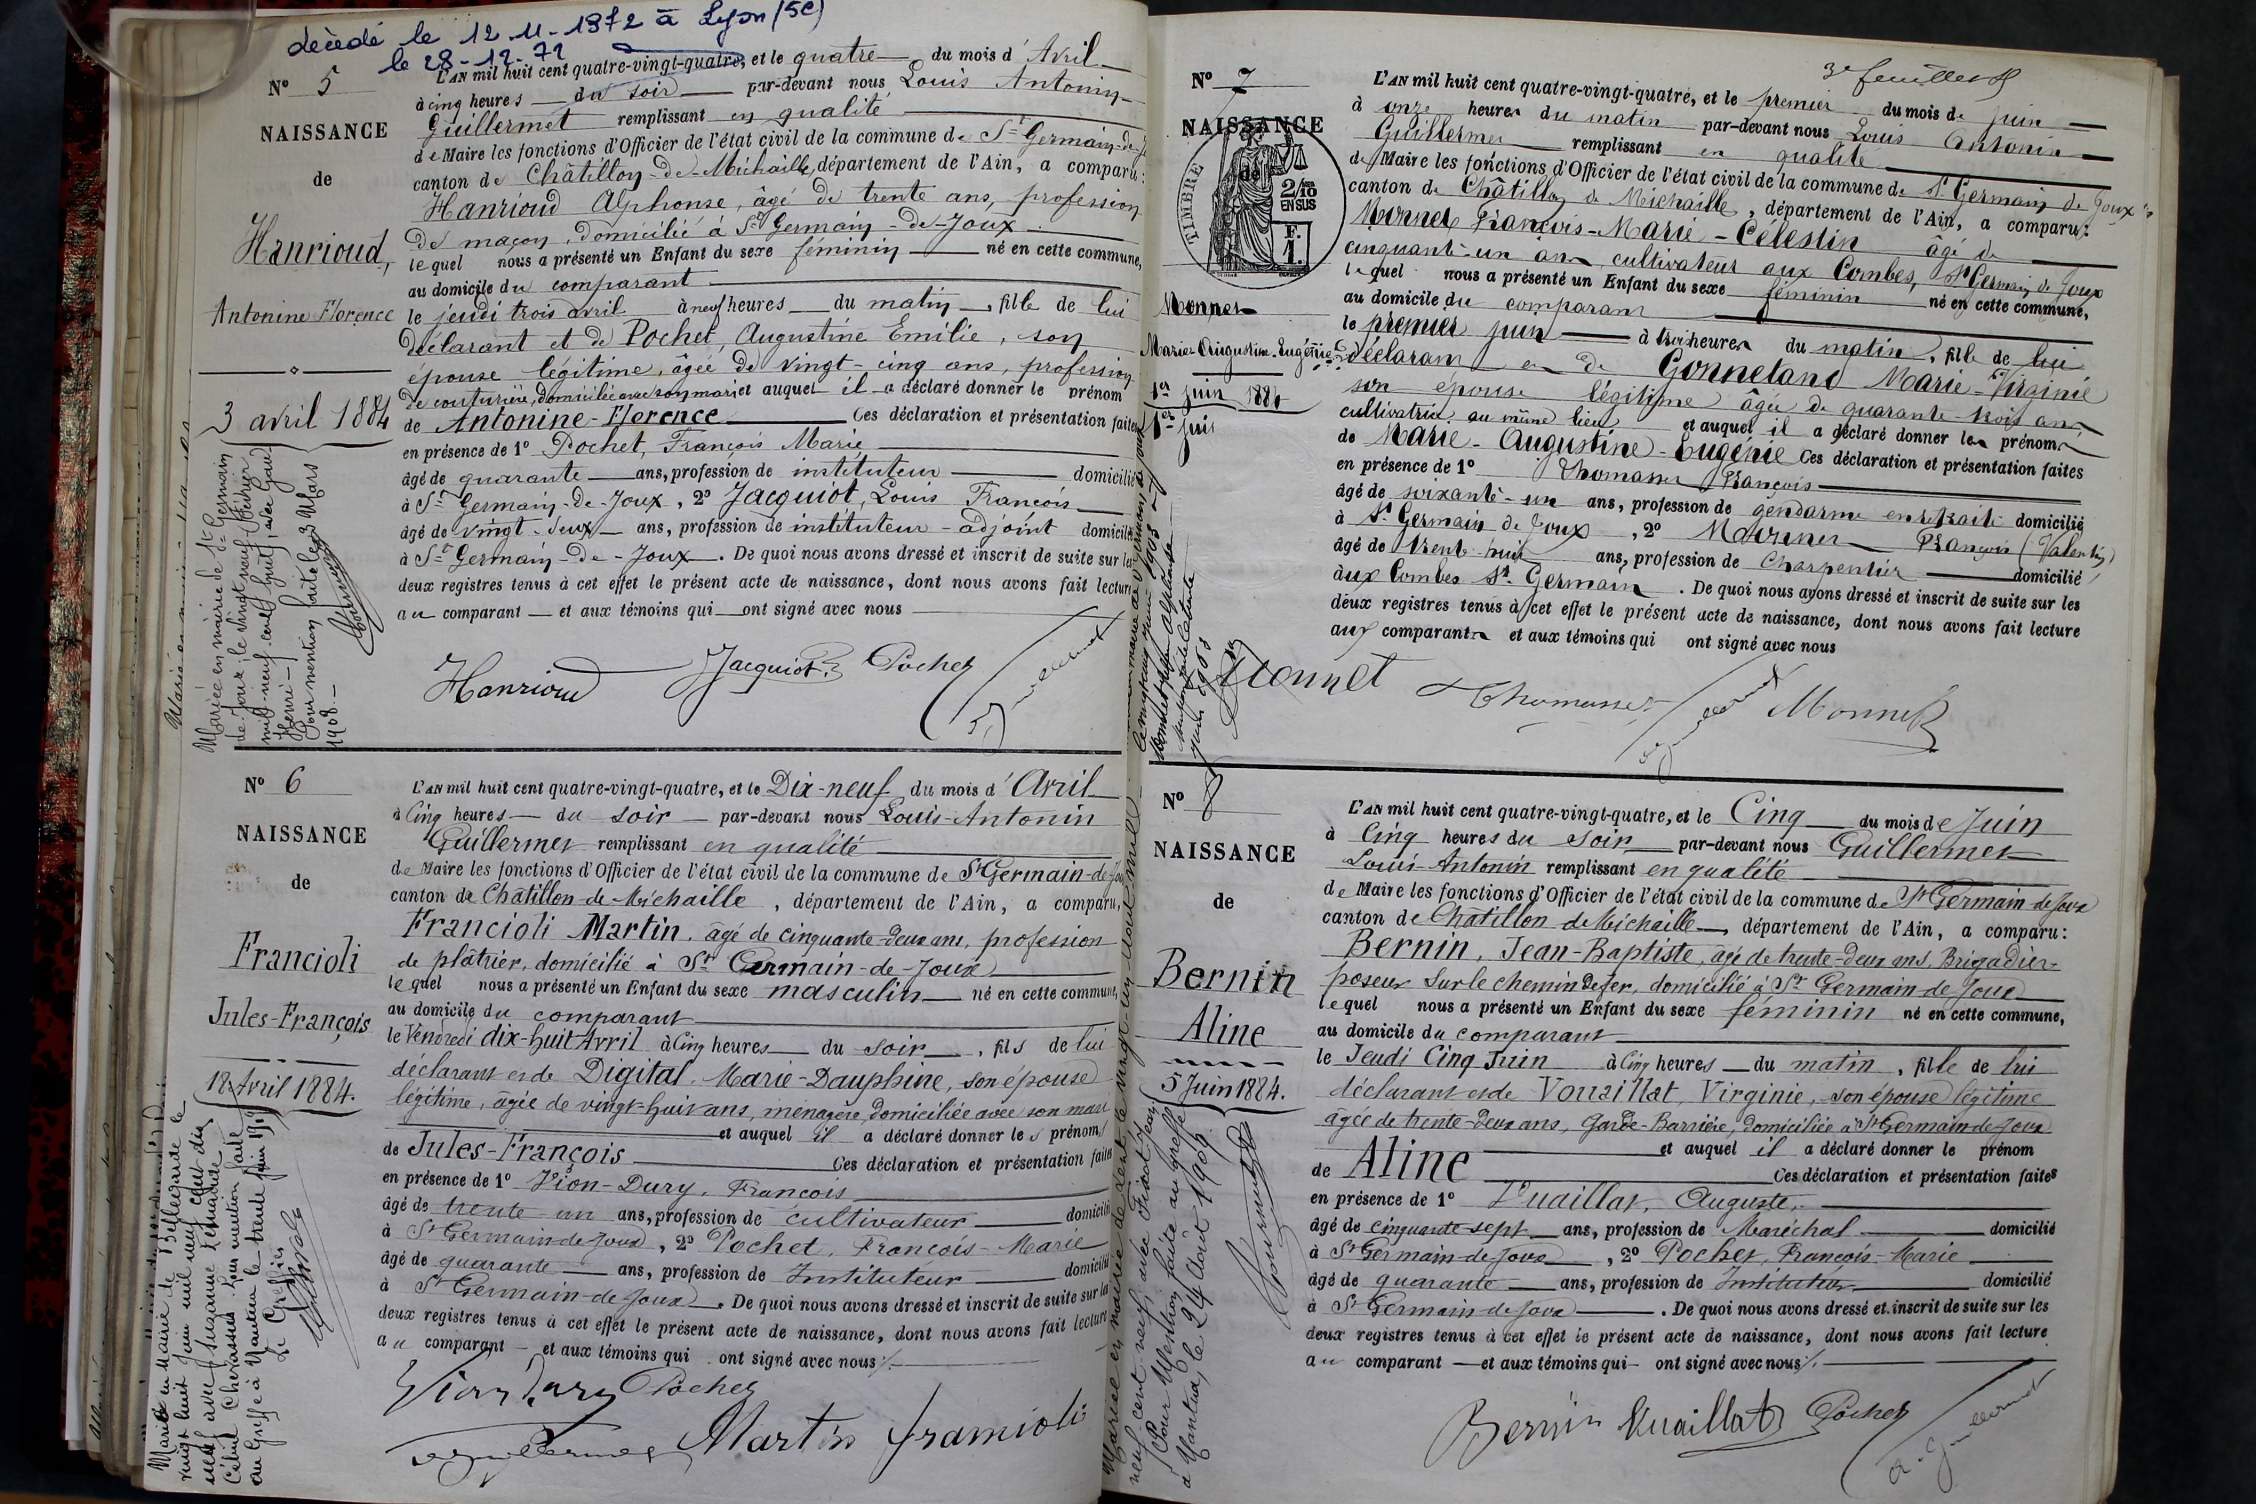 décédé le 12-11-1972 à Lyon (5e)
le 28-12-72
N° 5
NAISSANCE
de
Hanrioud,
Antonine Florence
3 avril 1884
Mariée en mairie de St Germain
de Joux, le vingt neuf Février
mil neuf cent huit, avec
Henri –
Pour mention faite le 3 Mars
1908 –
L'AN mil huit cent quatre-vingt-quatre, et le quatre du mois d'Avril
à cinq heures du soir par-devant nous Louis Antonin
Guillermet remplissant en qualité
de Maire les fonctions d'Officier de l'état civil de la commune de St Germain-de-
canton de Châtillon-de-Michaille, département de l'Ain, a comparu:
Hanrioud Alphonse, âgé de trente ans, profession
de maçon, domicilié à St Germain-de-Joux
lequel nous a présenté un Enfant du sexe féminin né en cette commune,
au domicile du comparant
le jeudi trois avril à neuf heures du matin, fille de lui
déclarant et de Pochet, Augustine Emilie, son
épouse légitime, âgée de vingt-cinq ans, profession
de couturière, domiciliée avec son mari et auquel il a déclaré donner le prénom
de Antonine-Florence Ces déclaration et présentation faites
en présence de 1° Pochet, François Marie
âgé de quarante ans, profession de instituteur domicilié
à St Germain-de-Joux, 2° Jacquiot, Louis François
âgé de vingt-deux ans, profession de instituteur-adjoint domicilié
à St Germain-de-Joux. De quoi nous avons dressé et inscrit de suite sur les
deux registres tenus à cet effet le présent acte de naissance, dont nous avons fait lecture
au comparant et aux témoins qui ont signé avec nous
Hanrioud Jacquiot Pochet
Guillermet
N° 6
NAISSANCE
de
Francioli
Jules-François
18 Avril 1884.
Marié en Mairie de Bellegarde le
vingt huit juin mil neuf cent dix
neuf avec Suzanne Léonide
Célina Chevassus. Pour mention faite
au Greffe à Nantua le trente juin 1919
Le Greffier
L'AN mil huit cent quatre-vingt-quatre, et le Dix-neuf du mois d'Avril
à Cinq heures du soir par-devant nous Louis-Antonin
Guillermet remplissant en qualité
de Maire les fonctions d'Officier de l'état civil de la commune de St Germain-de-Joux
canton de Châtillon-de-Michaille, département de l'Ain, a comparu,
Francioli Martin, âgé de cinquante-deux ans, profession
de plâtrier, domicilié à St Germain-de-Joux
lequel nous a présenté un Enfant du sexe masculin né en cette commune,
au domicile du comparant
le Vendredi dix-huit Avril à Cinq heures du soir, fils de lui
déclarant et de Digital, Marie-Dauphine, son épouse
légitime, âgée de vingt-huit ans, ménagère, domiciliée avec son mari
et auquel il a déclaré donner les prénoms
de Jules-François Ces déclaration et présentation faites
en présence de 1° Vion-Dury, François
âgé de trente-un ans, profession de cultivateur domicilié
à St Germain-de-Joux, 2° Pochet, François-Marie
âgé de quarante ans, profession de Instituteur domicilié
à St Germain-de-Joux. De quoi nous avons dressé et inscrit de suite sur la
deux registres tenus à cet effet le présent acte de naissance, dont nous avons fait lecture
au comparant et aux témoins qui ont signé avec nous
Vion Dury Pochet
Guillermet Martin Francioli
3e feuillet
N° 7
NAISSANCE
de
TIMBRE
2/10 EN SUS
F. 1.
Monnet
Marie Augustine Eugénie
1er juin 1884
L'AN mil huit cent quatre-vingt-quatre, et le premier du mois de juin
à onze heures du matin par-devant nous Louis Antonin
Guillermet remplissant en qualité
de Maire les fonctions d'Officier de l'état civil de la commune de St Germain de Joux
canton de Châtillon de Michaille, département de l'Ain, a comparu:
Monnet François-Marie-Célestin âgé de
cinquante-un ans, cultivateur aux Combes, St Germain de Joux
lequel nous a présenté un Enfant du sexe féminin né en cette commune,
au domicile du comparant
le premier juin à trois heures du matin, fille de lui
déclarant et de Gonneland Marie-Virginie
son épouse légitime âgée de quarante-trois ans
cultivatrice au même lieu et auquel il a déclaré donner les prénoms
de Marie-Augustine-Eugénie Ces déclaration et présentation faites
en présence de 1° Thomasset François
âgé de soixante-un ans, profession de gendarme en retraite domicilié
à St Germain de Joux, 2° Monnet François (Valentin)
âgé de trente-huit ans, profession de Charpentier domicilié
aux Combes St Germain. De quoi nous avons dressé et inscrit de suite sur les
deux registres tenus à cet effet le présent acte de naissance, dont nous avons fait lecture
aux comparants et aux témoins qui ont signé avec nous
Monnet Thomasset Guillermet Monnet
N° 8
NAISSANCE
de
Bernin
Aline
5 Juin 1884.
Mariée en mairie de
neuf cent neuf, avec
Pour Mention faite au greffe
à Nantua, le 24 Août 1909
L'AN mil huit cent quatre-vingt-quatre, et le Cinq du mois de Juin
à Cinq heures du soir par-devant nous Guillermet
Louis-Antonin remplissant en qualité
de Maire les fonctions d'Officier de l'état civil de la commune de St Germain-de-Joux
canton de Châtillon de Michaille, département de l'Ain, a comparu:
Bernin, Jean-Baptiste, âgé de trente-deux ans, Brigadier-
poseur sur le chemin de fer, domicilié à St Germain-de-Joux
lequel nous a présenté un Enfant du sexe féminin né en cette commune,
au domicile du comparant
le Jeudi Cinq Juin à Cinq heures du matin, fille de lui
déclarant et de Vouaillat, Virginie, son épouse légitime
âgée de trente-deux ans, Garde-Barrière, domiciliée à St Germain-de-Joux
et auquel il a déclaré donner le prénom
de Aline Ces déclaration et présentation faites
en présence de 1° Vuaillat, Auguste,
âgé de cinquante-sept ans, profession de Maréchal domicilié
à St Germain-de-Joux, 2° Pochet, François-Marie
âgé de quarante ans, profession de Instituteur domicilié
à St Germain-de-Joux. De quoi nous avons dressé et inscrit de suite sur les
deux registres tenus à cet effet le présent acte de naissance, dont nous avons fait lecture
au comparant et aux témoins qui ont signé avec nous
Bernin Vuaillat Pochet
A. Guillermet